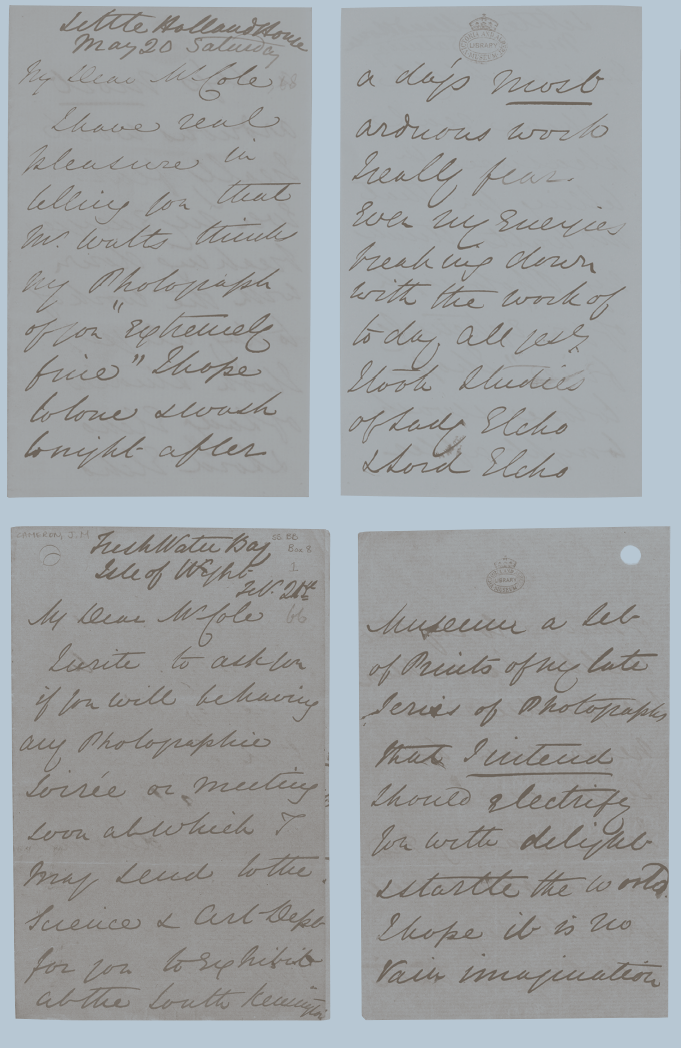 Little Holland House
May 20 Saturday
My Dear Mr Cole
I have real
pleasure in
telling you that
Mr. Watts thinks
my Photograph
of you "Extremely
fine" I hope
to lone swash
tonight after
LIBRARY
a day's most
arduous work
I really fear.
Even my Energies
breaking down
with the work of
to day, all yesty
I took Studies
of Lady Elcho
& Lord Elcho
CAMERON, J. M
Box 8
1
FreshWater Bay
Isle of Wight
Feb. 21st
66
My Dear Mr Cole
I write to ask you
if you will be having
any Photographic
Soirée or meeting
soon at which I
may send to the
Science & Art Dept
for you to Exhibit
at the South Kensington
LIBRARY
Museum a Set
of Prints of my late
Series of Photographs
that I intend
should electrify
you with delight
& startle the world.
I hope it is no
vain imagination